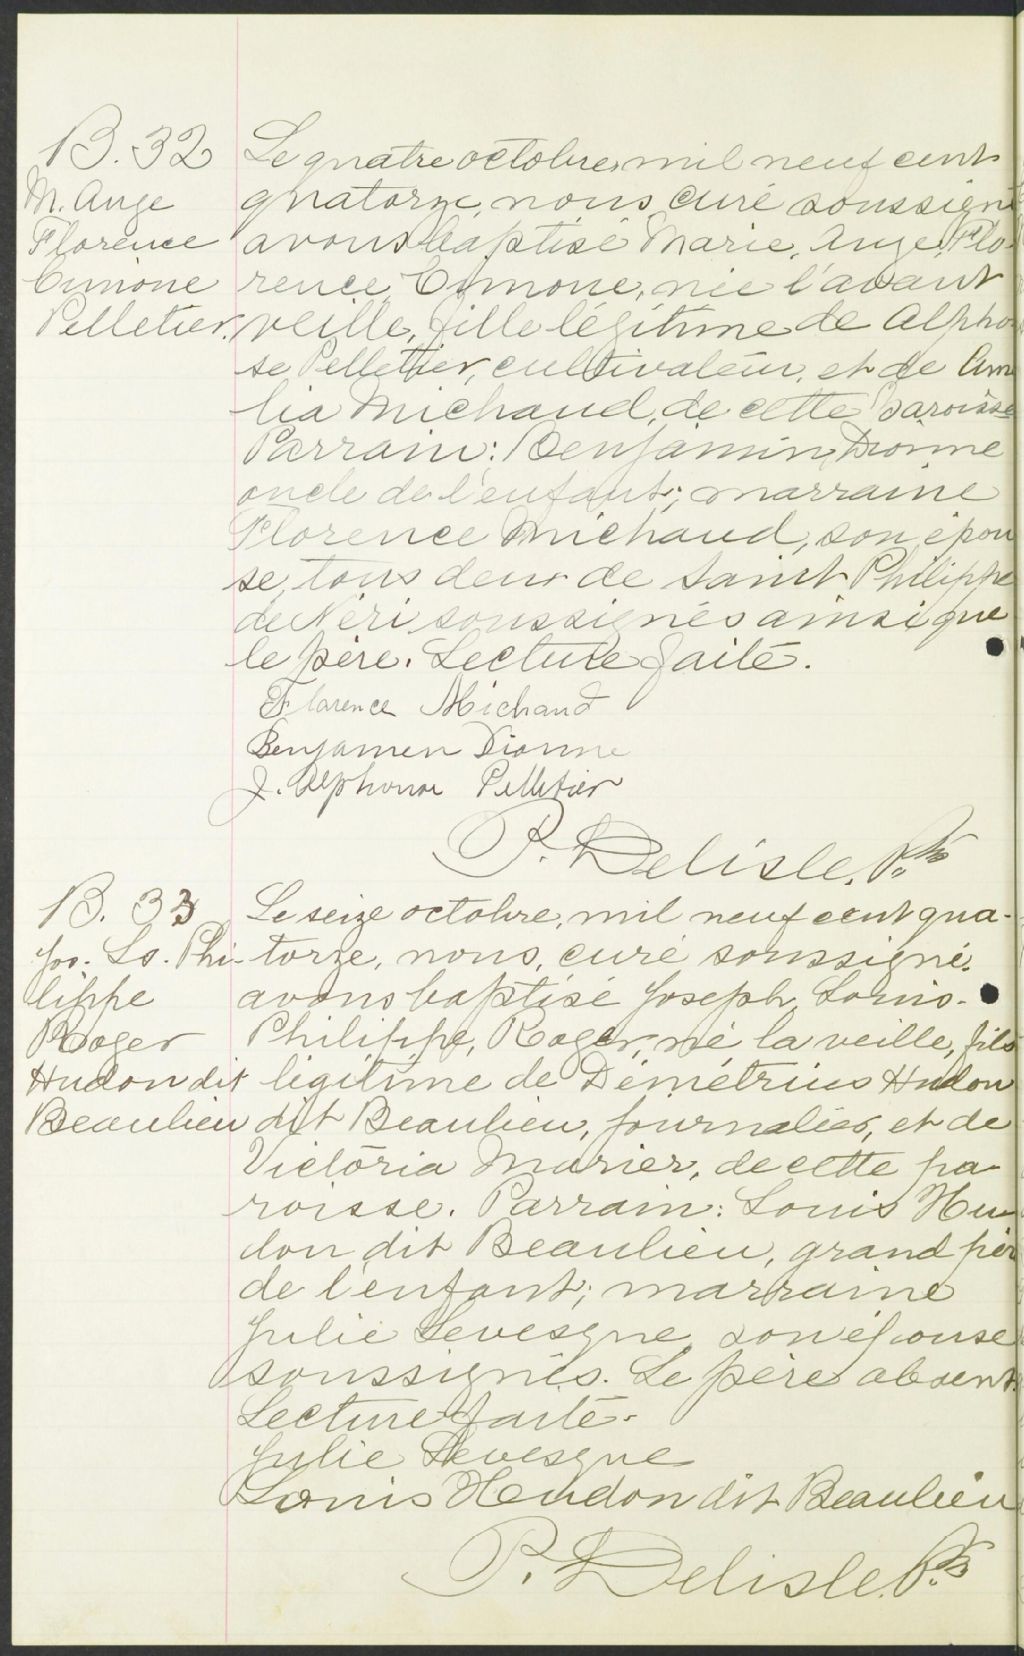 B. 32
M. Ange
Florence
Cimone
Pelletier.
Le quatre octobre, mil neuf cent
quatorze, nous curé soussigné
avons baptisé Marie, Ange, Flo-
rence, Cimone, née l'avant
veille, fille légitime de Alphon
se Pelletier, cultivateur, et de Amé
lia Michaud, de cette Paroisse
Parrain: Benjamin Dionne
oncle de l'enfant; marraine
Florence Michaud, son épou
se, tous deux de Saint Philippe
de Néri soussignés ainsi que
le père. Lecture faite.
Florence Michaud
Benjamen Dionne
J. Alphonse Pelletier
P. Delisle, Ptre
B. 33
Jos. Ls. Phi-
lippe
Roger
Hudon dit
Beaulieu
Le seize octobre, mil neuf cent qua-
torze, nous, curé soussigné,
avons baptisé Joseph, Louis-
Philippe, Roger, né la veille, fils
légitime de Démétrius Hudon
dit Beaulieu, journalier, et de
Victoria Marier, de cette pa-
roisse. Parrain: Louis Hu-
don dit Beaulieu, grand père
de l'enfant; marraine
Julie Levesque son épouse
soussignés. Le père absent.
Lecture faite.
Julie Levesque
Louis Heudon dit Beaulieu
P. Delisle, Ptre